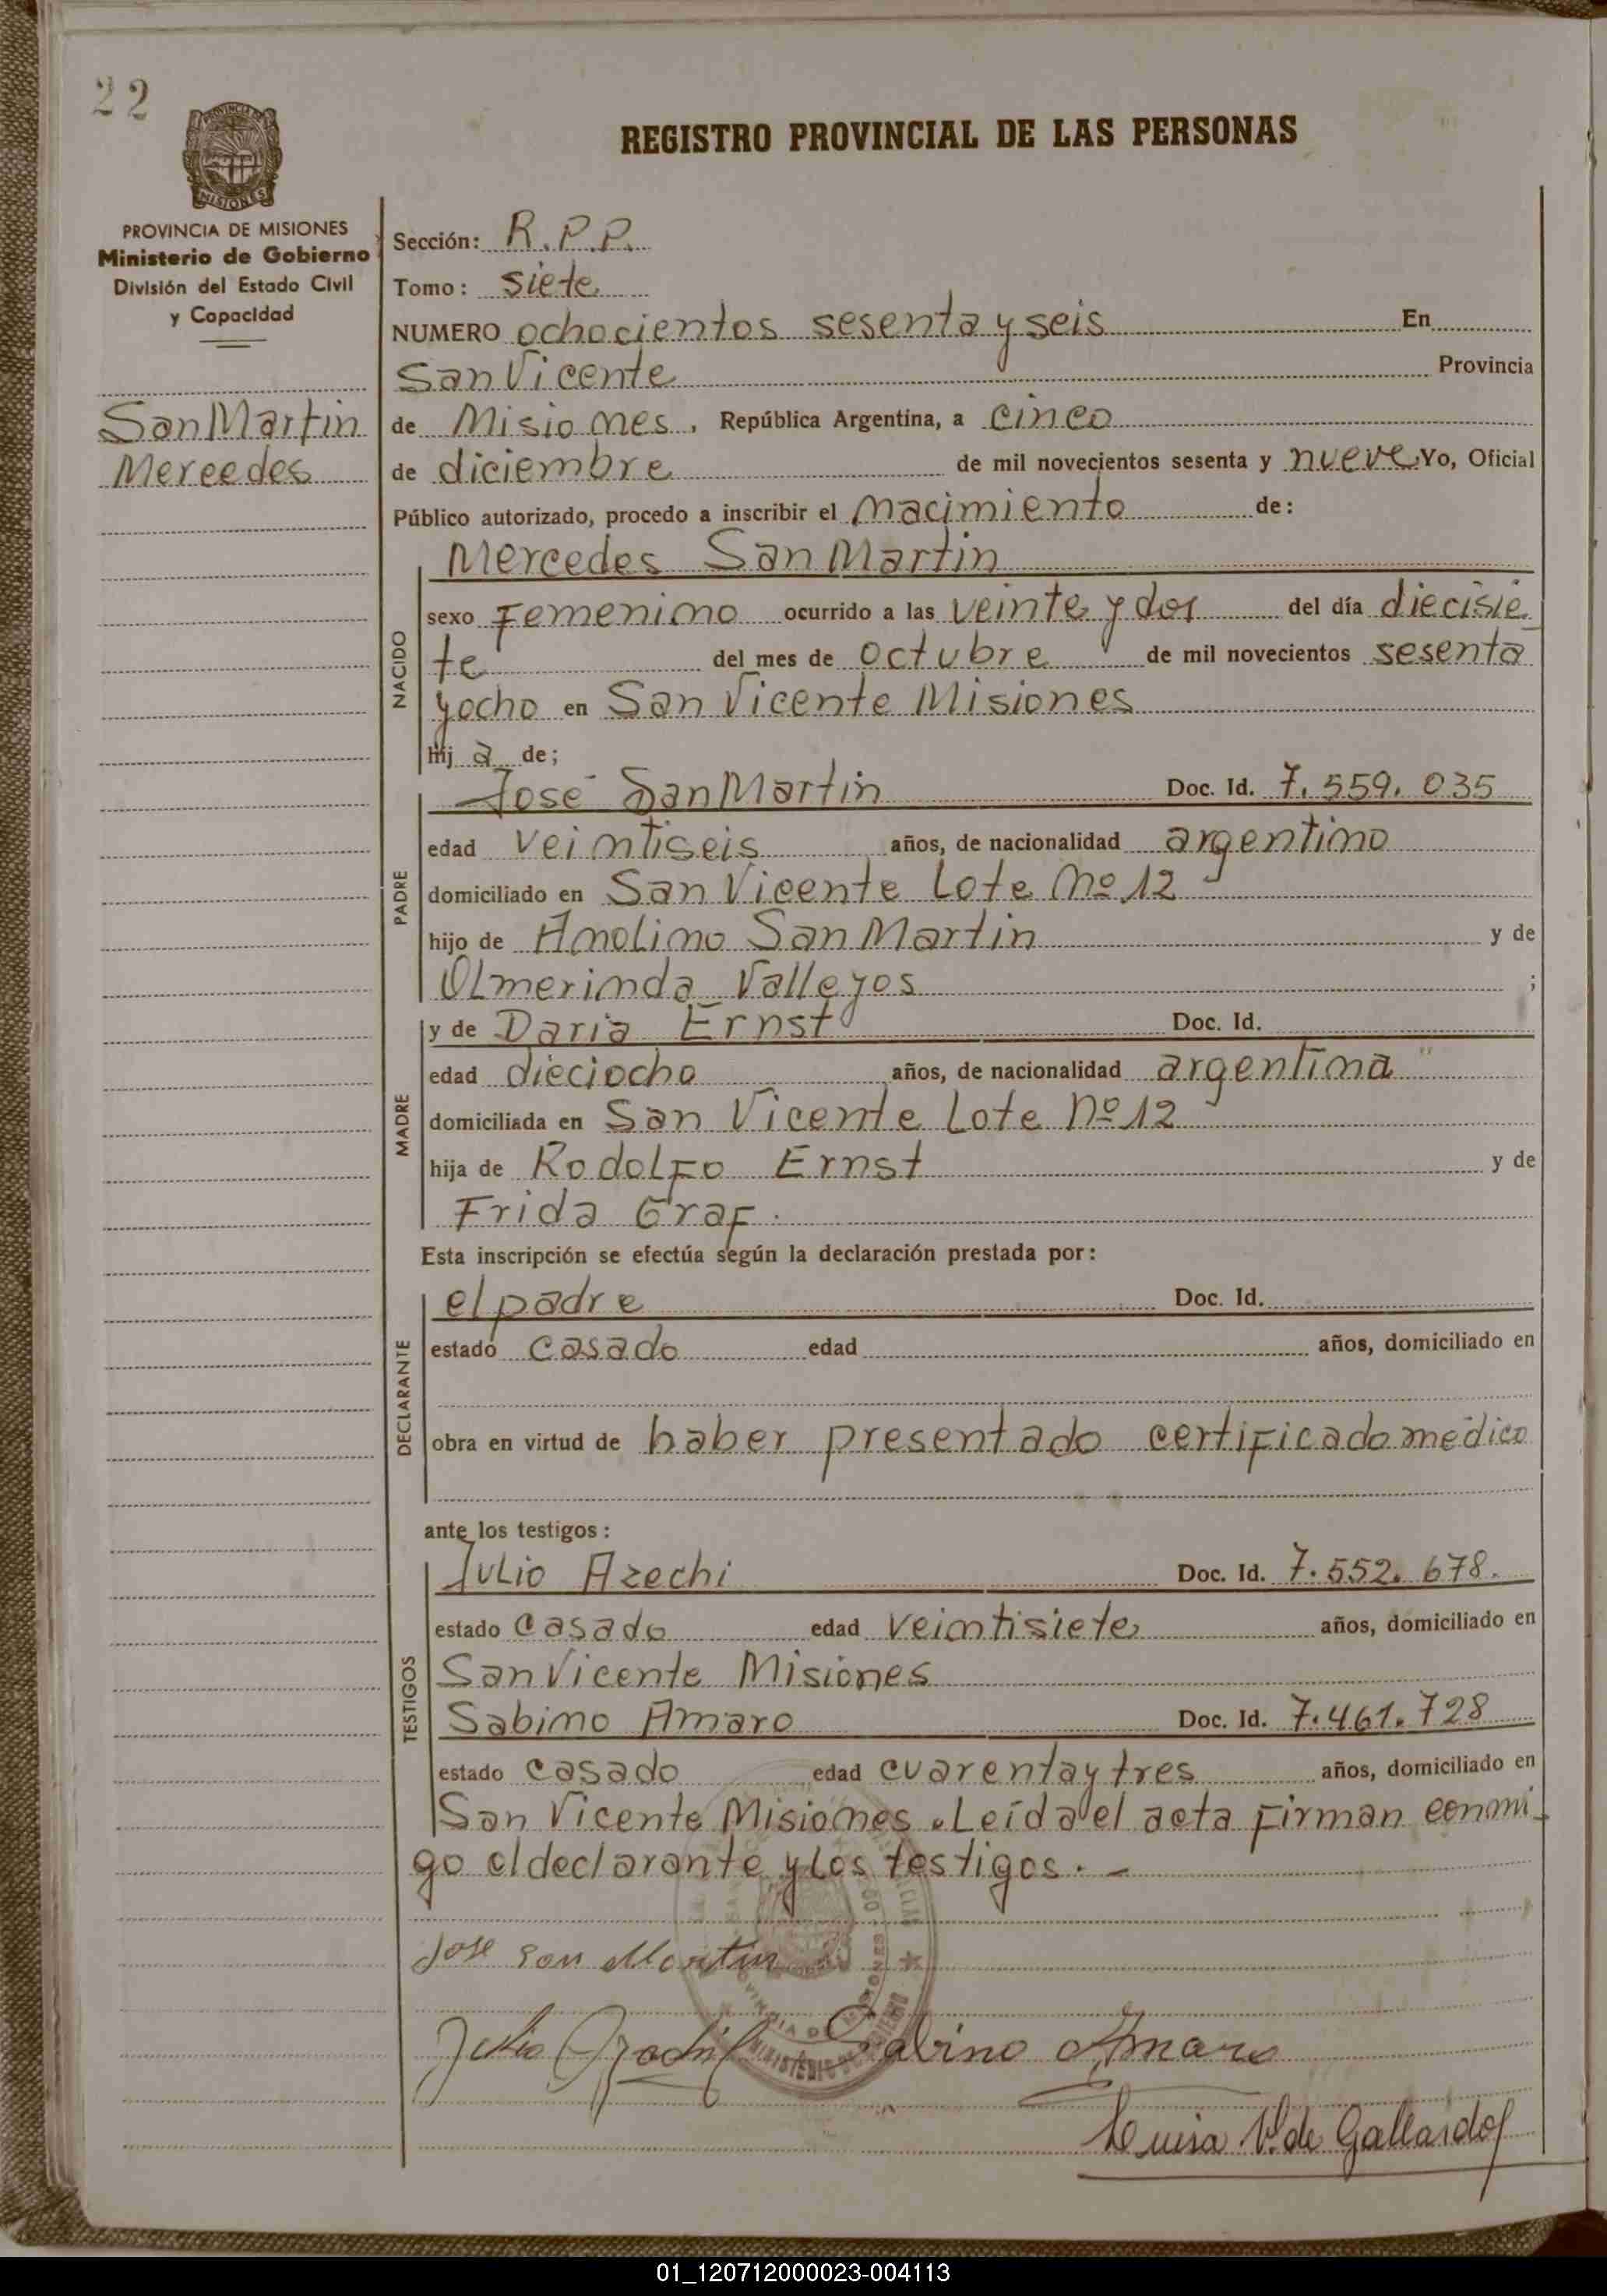 22
PROVINCIA
MISIONES
REGISTRO PROVINCIAL DE LAS PERSONAS
PROVINCIA DE MISIONES
Ministerio de Gobierno
División del Estado Civil
y Capacidad
San Martin
Mercedes
Sección: R.P.P.
Tomo: siete
NUMERO ochocientos sesenta y seis En
San Vicente Provincia
de Misiones, República Argentina, a cinco
de diciembre de mil novecientos sesenta y nueve Yo, Oficial
Público autorizado, procedo a inscribir el nacimiento de:
NACIDO
Mercedes San Martin
sexo Femenino ocurrido a las veinte y dos del día diecisie
te del mes de octubre de mil novecientos sesenta
y ocho en San Vicente Misiones
hij a de;
PADRE
José San Martin Doc. Id. 7.559.035
edad veintiseis años, de nacionalidad argentino
domiciliado en San Vicente Lote Nº 12
hijo de Anolino San Martin y de
Olmerinda Valleyos ;
MADRE
y de Daria Ernst Doc. Id.
edad dieciocho años, de nacionalidad argentina "
domiciliada en San Vicente Lote nº 12
hija de Rodolfo Ernst y de
Frida Graf.
Esta inscripción se efectúa según la declaración prestada por:
DECLARANTE
el padre Doc. Id.
estado casado edad años, domiciliado en
obra en virtud de haber presentado certificado médico
ante los testigos:
TESTIGOS
Julio Azechi Doc. Id. 7.552.678.
estado casado edad veintisiete años, domiciliado en
San Vicente Misiones
Sabino Amaro Doc. Id. 7.461.728
estado casado edad cuarenta y tres años, domiciliado en
San Vicente Misiones. Leída el acta firman conmi-
go el declarante y los testigos. -
Jose San Martin
MINISTERIO DE GOBIERNO
Julio Sabino Amaro
Luisa V. de Gallardo
01_120712000023-004113